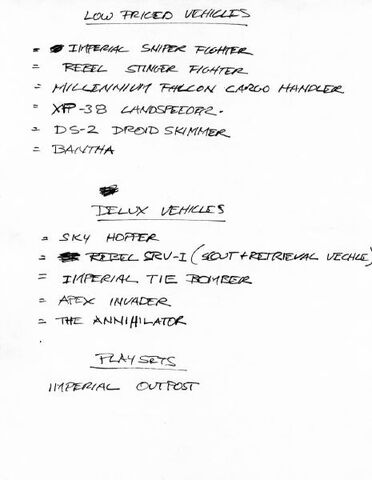 LOW PRICED VEHICLES
= IMPERIAL SNIPER FIGHTER
= REBEL STINGER FIGHTER
= MILLENNIUM FALCON CARGO HANDLER
= XP-38 LANDSPEEDER.
= DS-2 DROID SKIMMER
= BANTHA
DELUX VEHICLES
= SKY HOPPER
= REBEL SRV-1 (SCOUT + RETRIEVAL VECHLE)
= IMPERIAL TIE BOMBER
= APEX INVADER
= THE ANNIHILATOR
PLAY SETS
IMPERIAL OUTPOST